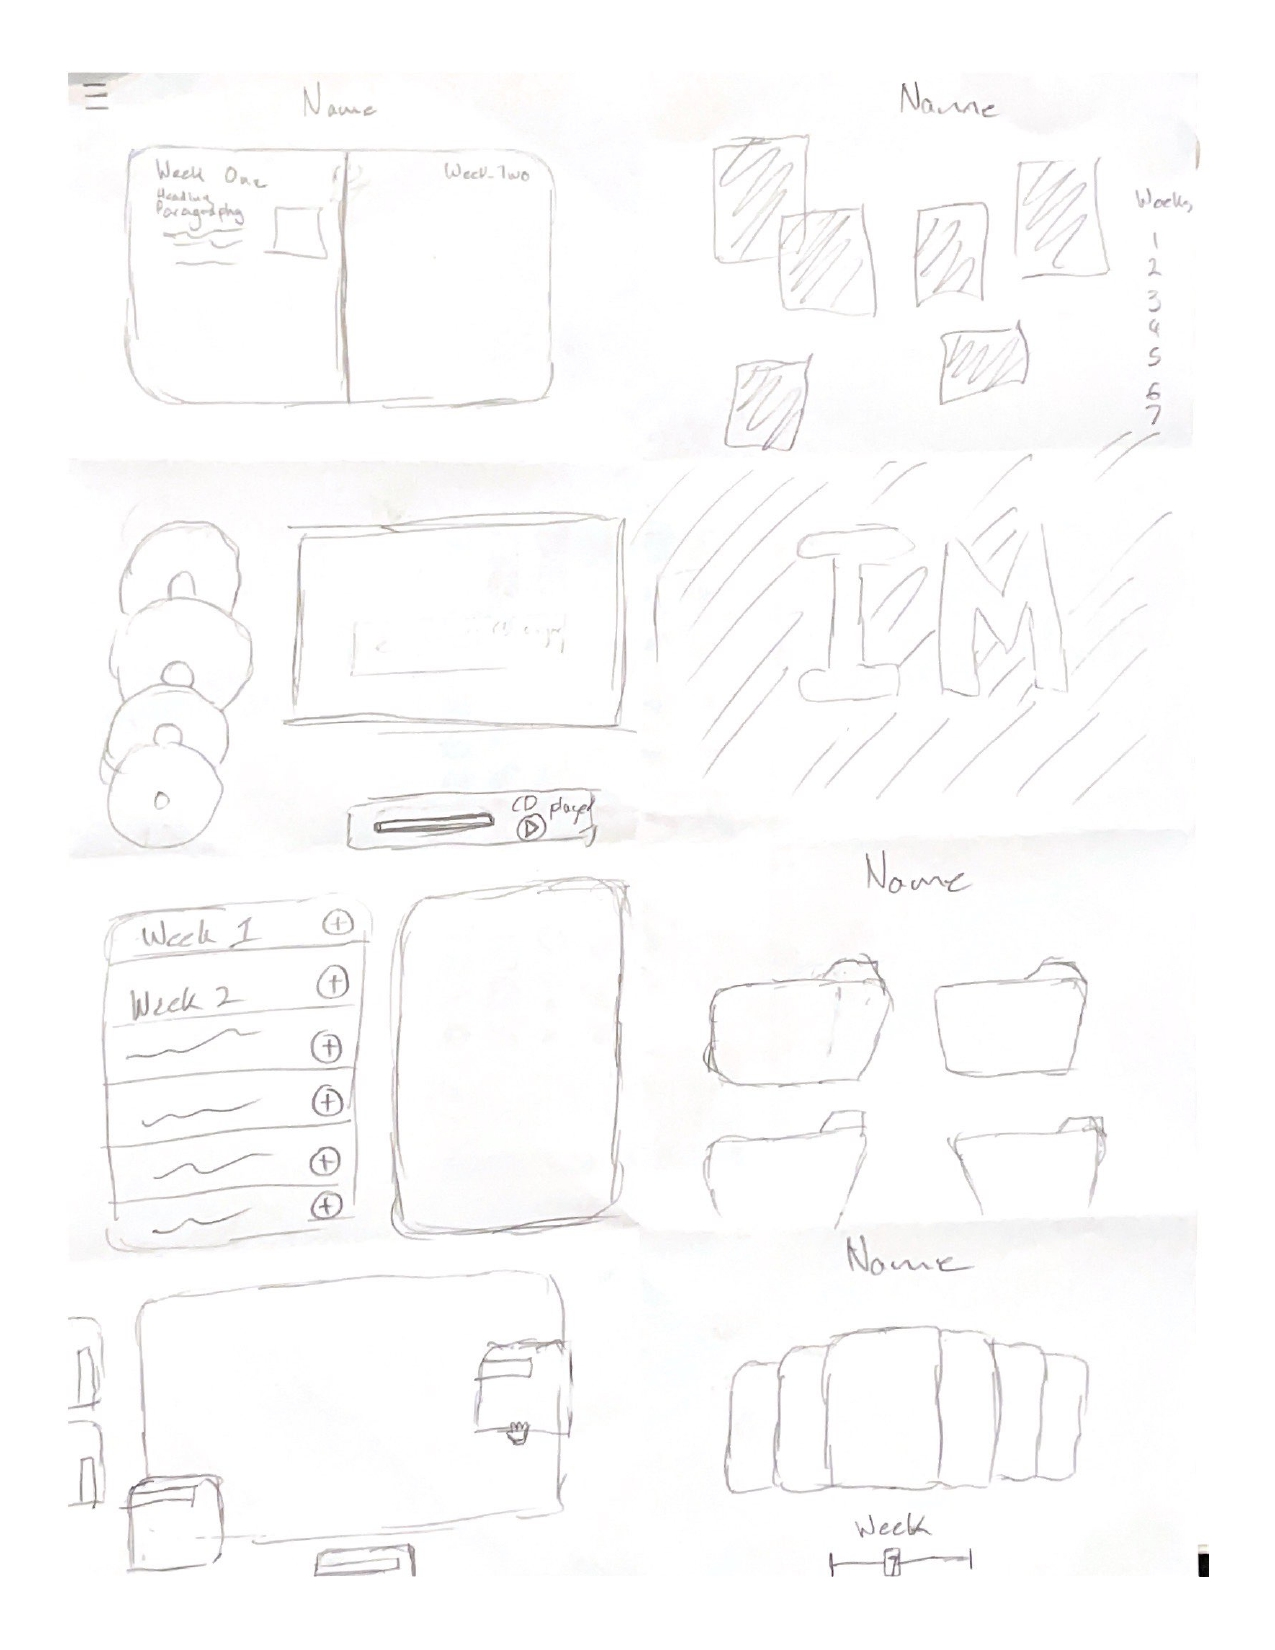 Name
Week One
Heading
Paragraphy
Week Two
Name
Weeks
1
2
3
4
5
6
7
IM
CD player
Week 1
Week 2
Name
Name
Week
7